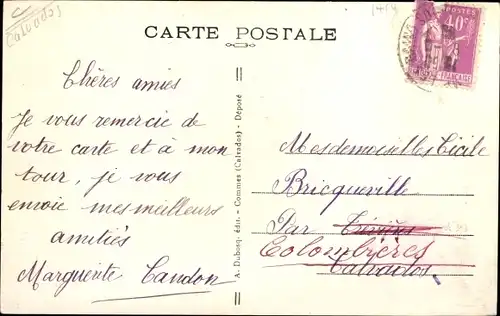 Calvados
CARTE POSTALE
POSTES
40c
FRANÇAISE
Chères amies
Je vous remercie de
votre carte et à mon
tour, je vous
envoie mes meilleurs
amitiés
Marguerite Candon
A. Dubosq, édit. - Commes (Calvados) - Déposé
Mesdemoiselles Cécile
Bricqueville
Par Trévières
Colombières
Calvados